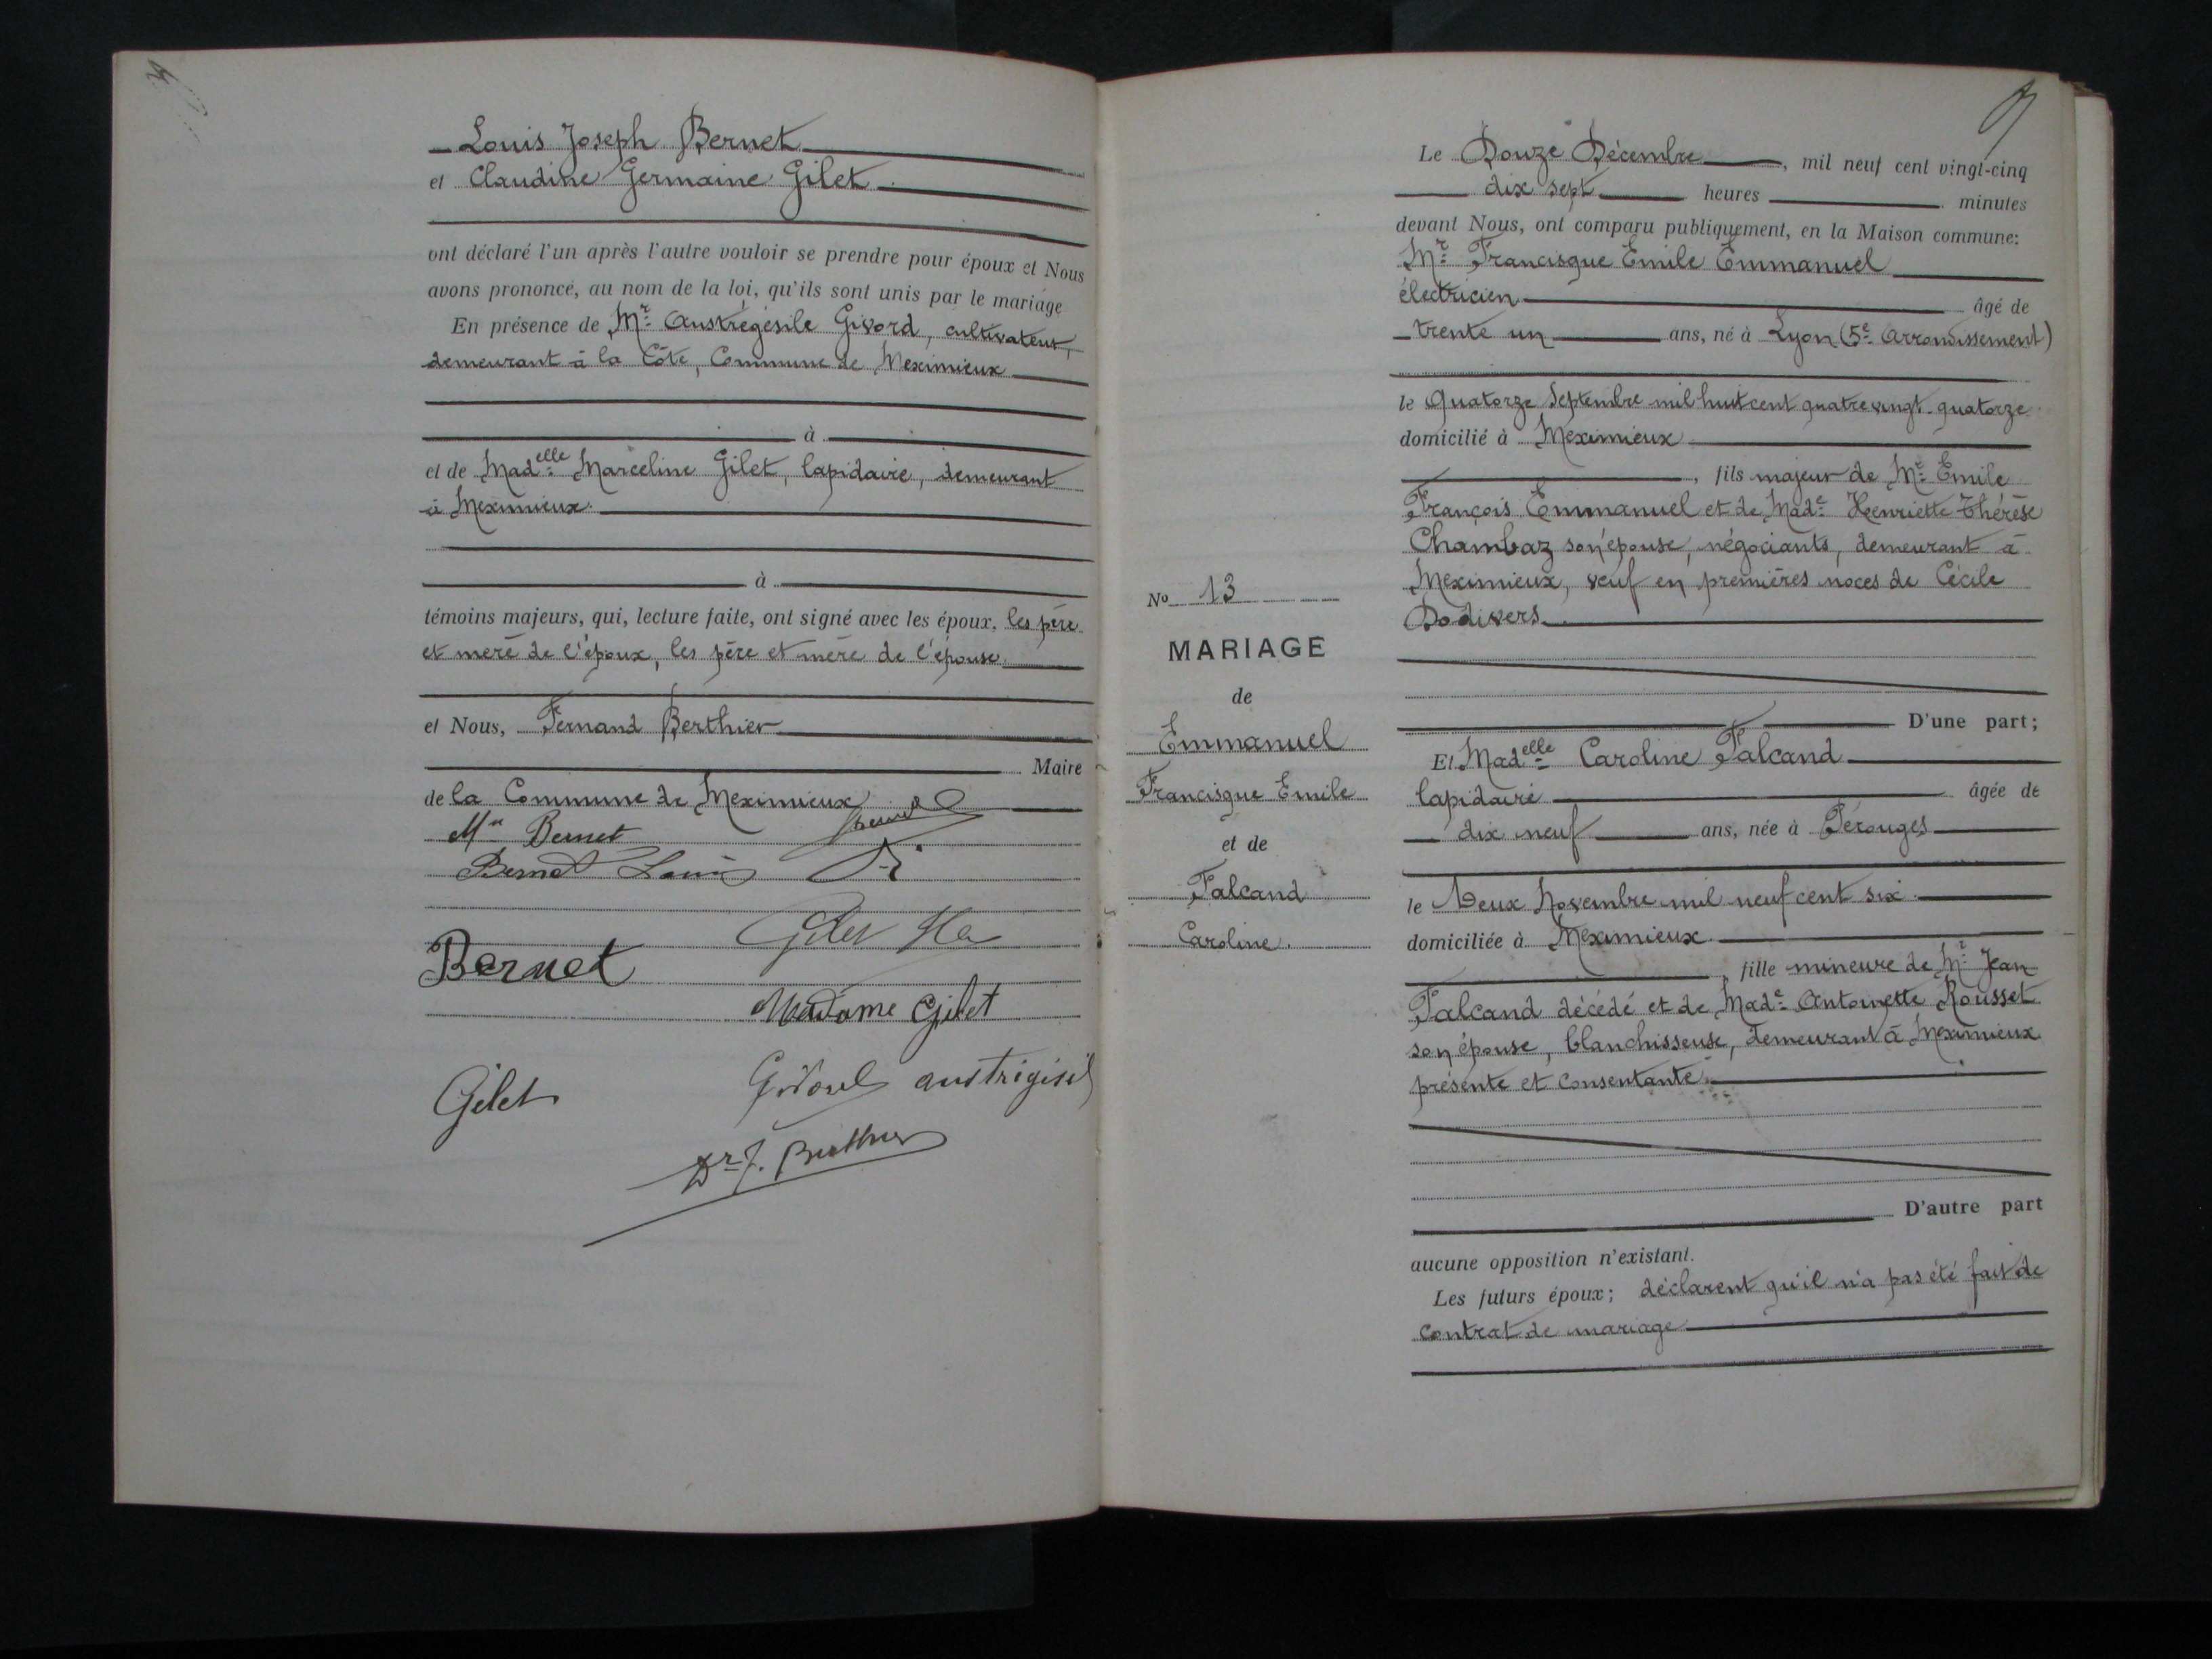 Louis Joseph Bernet
et Claudine Germaine Gilet
ont déclaré l'un après l'autre vouloir se prendre pour époux et Nous
avons prononcé, au nom de la loi, qu'ils sont unis par le mariage
En présence de Mr Austrégésile Givord, cultivateur,
demeurant à la Côte, Commune de Meximieux
à
et de Madelle Marceline Gilet, lapidaire, demeurant
à Meximieux
à
témoins majeurs, qui, lecture faite, ont signé avec les époux, les père
et mère de l'époux, les père et mère de l'épouse.
et Nous, Fernand Berthier
Maire
de la Commune de Meximieux
Bernet
Bernet Louis
Gilet
Bernet
Madame Gilet
Gilet
Dr F. Berthier
Le Douze Décembre, mil neuf cent vingt-cinq
dix sept heures minutes
devant Nous, ont comparu publiquement, en la Maison commune:
Mr Francisque Emile Emmanuel
électricien âgé de
trente un ans, né à Lyon (5e Arrondissement)
le Quatorze Septembre mil huit cent quatre vingt-quatorze
domicilié à Meximieux
, fils majeur de Mr Emile
François Emmanuel et de Made Henriette Thérèse
Chambaz son épouse, négociants, demeurant à
Meximieux, veuf en premières noces de Cécile
Dodivers
No 13
MARIAGE
de
Emmanuel
Francisque Emile
et de
Falcand
Caroline.
D'une part;
Et Madelle Caroline Falcand
lapidaire âgée de
dix neuf ans, née à Pérouges
le Deux Novembre mil neuf cent six
domiciliée à Meximieux
, fille mineure de Mr Jean
Falcand décédé et de Made Antoinette Rousset
son épouse, blanchisseuse, demeurant à Meximieux
présente et consentante.
D'autre part
aucune opposition n'existant.
Les futurs époux; déclarent qu'il n'a pas été fait de
contrat de mariage